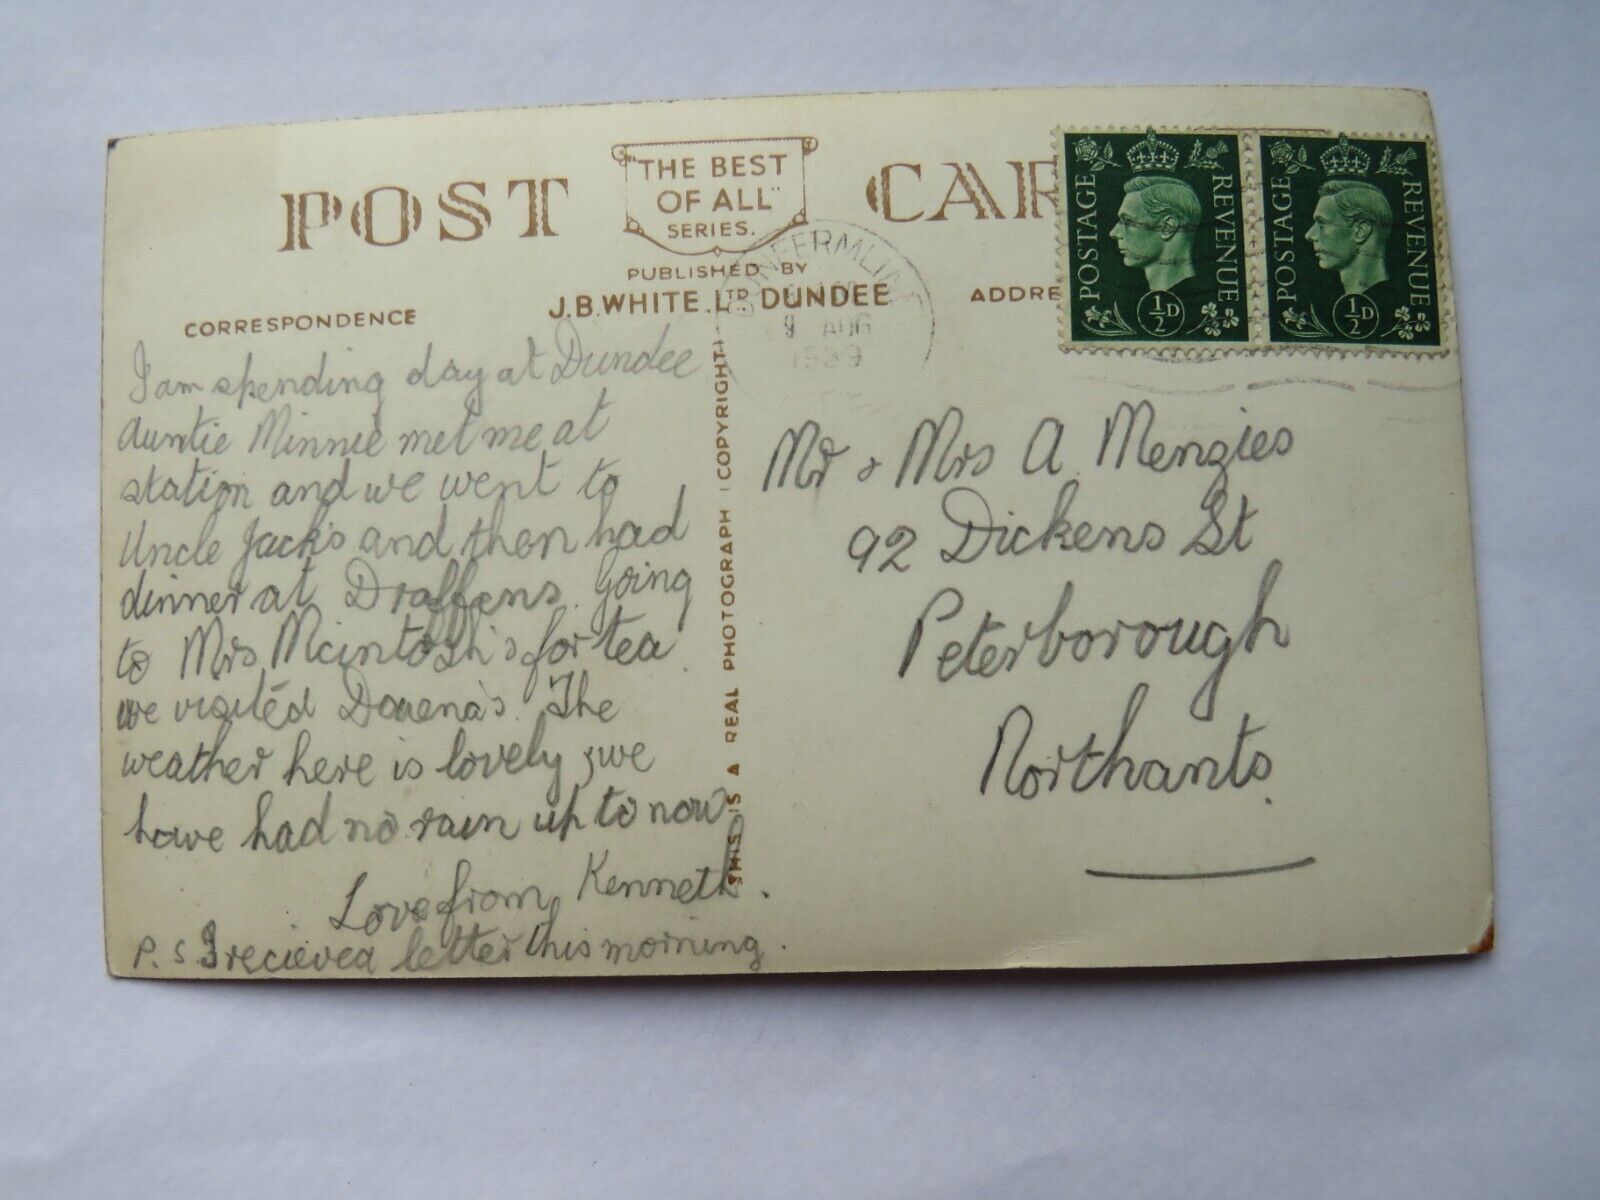 POST CAR
"THE BEST
OF ALL"
SERIES.
PUBLISHED BY
J.B. WHITE. LTD DUNDEE
CORRESPONDENCE
ADDRE
DUNFERMLINE
9 AUG
1939
POSTAGE REVENUE
½D
POSTAGE REVENUE
½D
I am spending day at Dundee
Auntie Minnie met me at
station and we went to
Uncle Jack's and then had
dinner at Draffens. Going
to Mrs Mcintosh's for tea.
we visited The
weather here is lovely, we
have had no rain up to now
Love from Kenneth.
P.S I recieved letter this morning.
THIS IS A REAL PHOTOGRAPH COPYRIGHT
Mr & Mrs A Menzies
92 Dickens St
Peterborough
Northants.